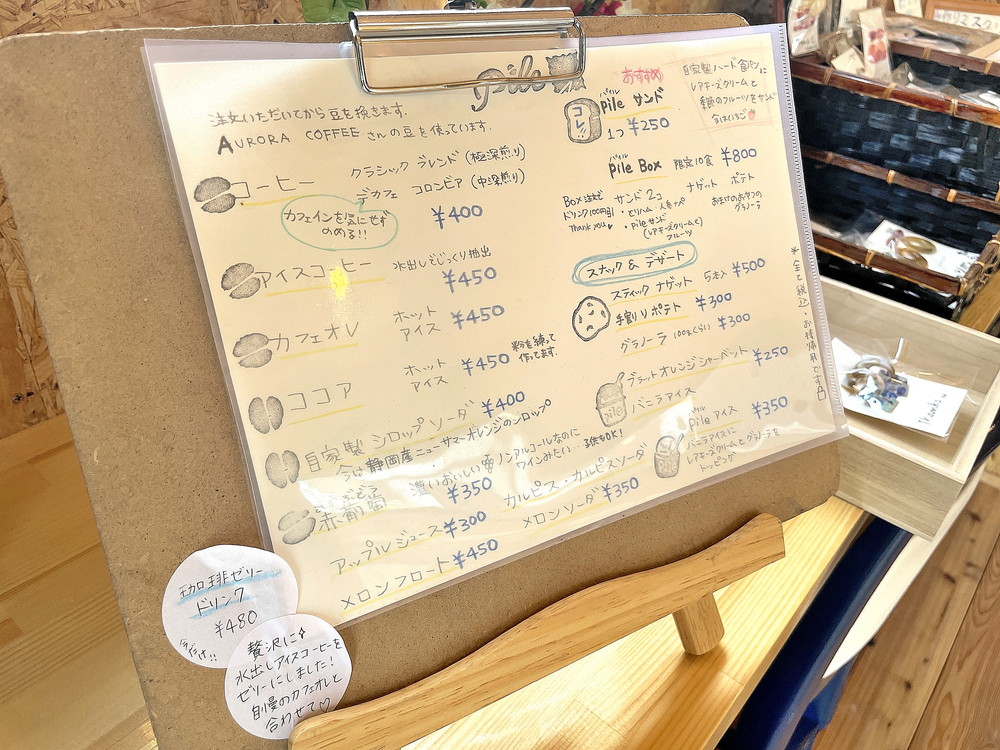 pile
注文いただいてから豆を挽きます.
AURORA COFFEE さんの豆を使っています.
コーヒー クラシック ブレンド (極深煎り)
デカフェ コロンビア (中深煎り)
カフェインを気にせず
のめる!!
¥400
アイスコーヒー 水出しでじっくり抽出
¥450
カフェオレ ホット
アイス ¥450
ココア ホット
アイス ¥450 粉を練って
作ってます.
自家製 シロップソーダ ¥400
今は静岡産ニューサマーオレンジのシロップ
ぶどう
赤葡萄 濃いおいしい ノンアルコールなのに
ワインみたい
¥350
アップルジュース ¥300
メロンフロート ¥450
カルピス・カルピスソーダ
メロンソーダ ¥350
おすすめ
コレ!
パイル
pile サンド
1つ ¥250
自家製ハード食パンに
レアチーズクリームと
季節のフルーツをサンド
今はいちご
パイル
pile Box 限定10食 ¥800
Box注文で
ドリンク100円引
Thank you
サンド 2コ
・pile サンド
(レアチーズクリームと
フルーツ)
ナゲット ポテト
おまけのおやつの
グラノーラ
スナック & デザート
スティック ナゲット 5本入 ¥500
手割りポテト ¥300
グラノーラ 100gくらい ¥300
ブラッドオレンジシャーベット ¥250
pile
バニラアイス
パイル
pile アイス ¥350
バニラアイスに
レアチーズクリームとグラノーラを
トッピング
*全て税込・お持帰用です
珈琲ゼリー
ドリンク
¥480
今だけ!!
贅沢に
水出しアイスコーヒーを
ゼリーにしました!
自慢のカフェオレと
合わせて♡
Thanks